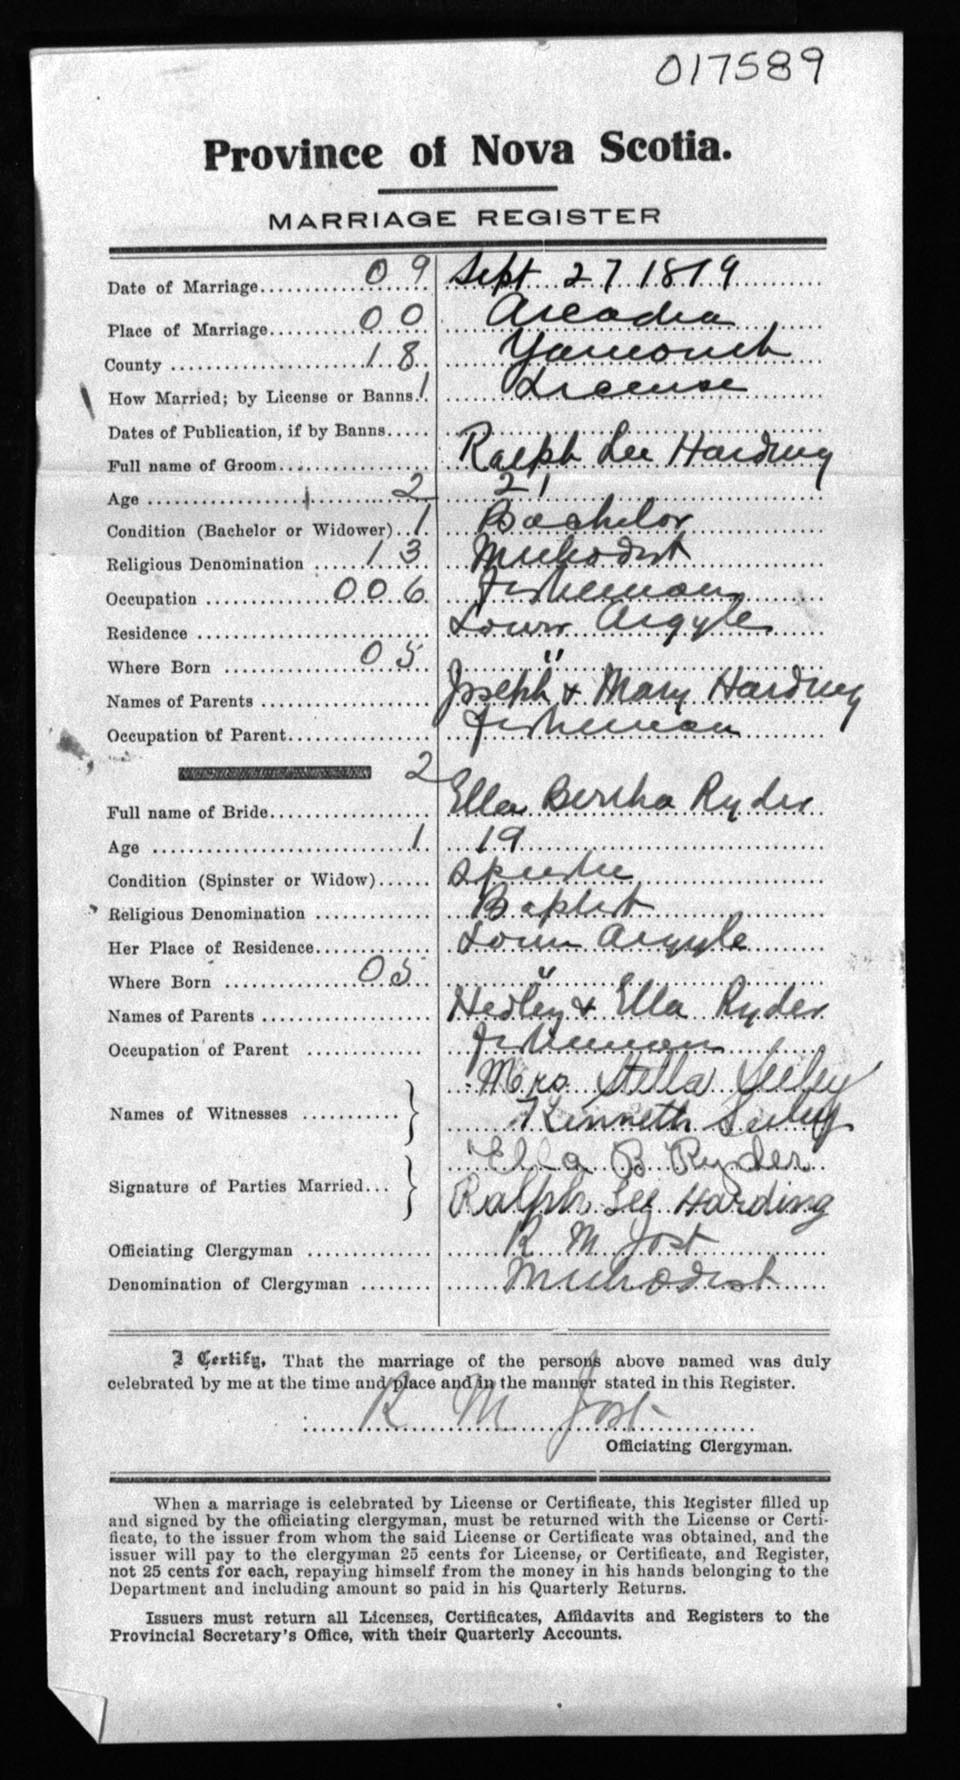 017589
Province of Nova Scotia.
MARRIAGE REGISTER
Date of Marriage 0 9 Sept 27 1819
Place of Marriage 0 0 Arcadia
County 1 8 Yarmouth
How Married; by License or Banns 1 License
Dates of Publication, if by Banns
Full name of Groom Ralph Lee Harding
Age 2 21
Condition (Bachelor or Widower) 1 Bachelor
Religious Denomination 1 3 Methodist
Occupation 0 0 6 Fisherman
Residence Lower Argyle
Where Born 0 5 "
Names of Parents Joseph & Mary Harding
Occupation of Parent Fisherman
2
Full name of Bride Ella Bertha Ryder
Age 1 19
Condition (Spinster or Widow) Spinster
Religious Denomination Baptist
Her Place of Residence Lower Argyle
Where Born 0 5 "
Names of Parents Hedley & Ella Ryder
Occupation of Parent Fisherman
Names of Witnesses Mrs Stella Seeley
Kenneth Seeley
Signature of Parties Married Ella B Ryder
Ralph Lee Harding
Officiating Clergyman R M Jost
Denomination of Clergyman Methodist
I Certify, That the marriage of the persons above named was duly
celebrated by me at the time and place and in the manner stated in this Register.
R M Jost
Officiating Clergyman.
When a marriage is celebrated by License or Certificate, this Register filled up
and signed by the officiating clergyman, must be returned with the License or Certi-
ficate, to the issuer from whom the said License or Certificate was obtained, and the
issuer will pay to the clergyman 25 cents for License, or Certificate, and Register,
not 25 cents for each, repaying himself from the money in his hands belonging to the
Department and including amount so paid in his Quarterly Returns.
Issuers must return all Licenses, Certificates, Affidavits and Registers to the
Provincial Secretary's Office, with their Quarterly Accounts.